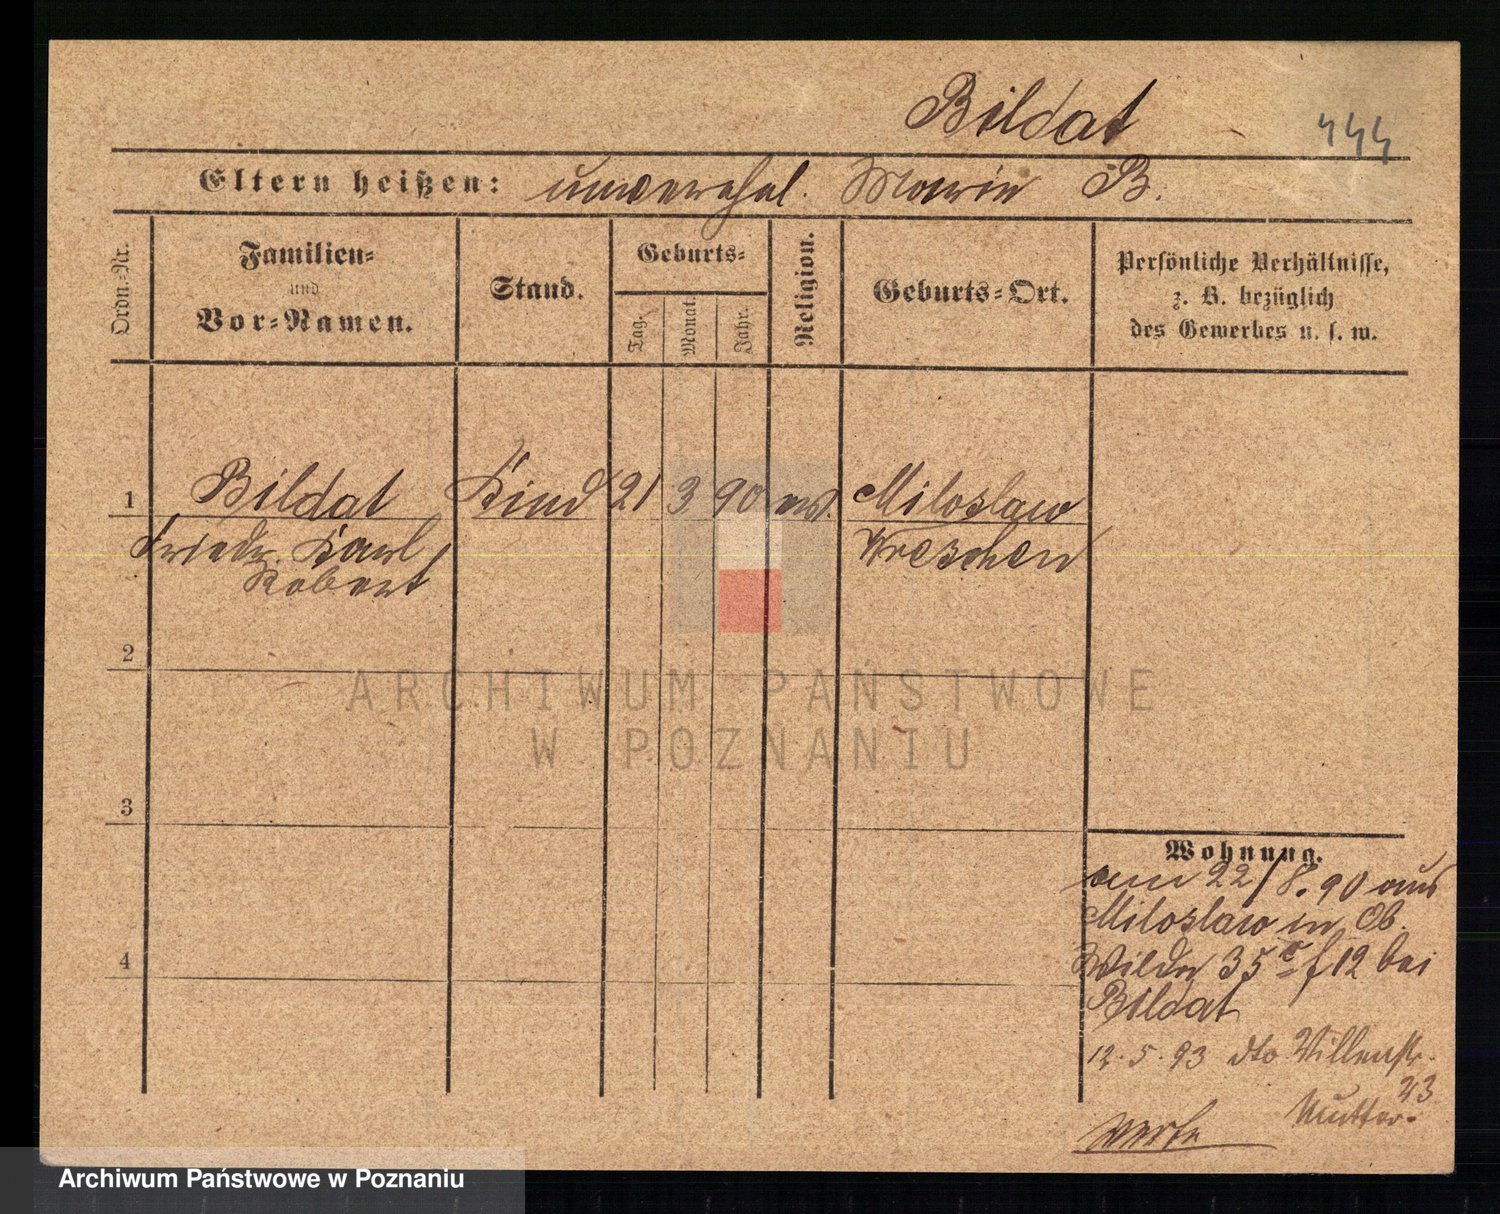 Bildat
444
Eltern heißen: unverehel. Marie B.
Ordn.-Nr.
Familien-
und
Vor-Namen.
Stand.
Geburts-
Tag.
Monat.
Jahr.
Religion.
Geburts-Ort.
Persönliche Verhältnisse,
z. B. bezüglich
des Gewerbes u. s. w.
1 Bildat Kind 21 3 90 ev. Miloslaw
Friedr. Karl Wreschen
Robert
2
3
4
Wohnung.
am 22/8.90 aus
Miloslaw in Ob.
Wilda 35 f 12 bei
Bildat
12.5.93 dto Villenstr.
23
Mutter.
ARCHIWUM PAŃSTWOWE
W POZNANIU
Archiwum Państwowe w Poznaniu